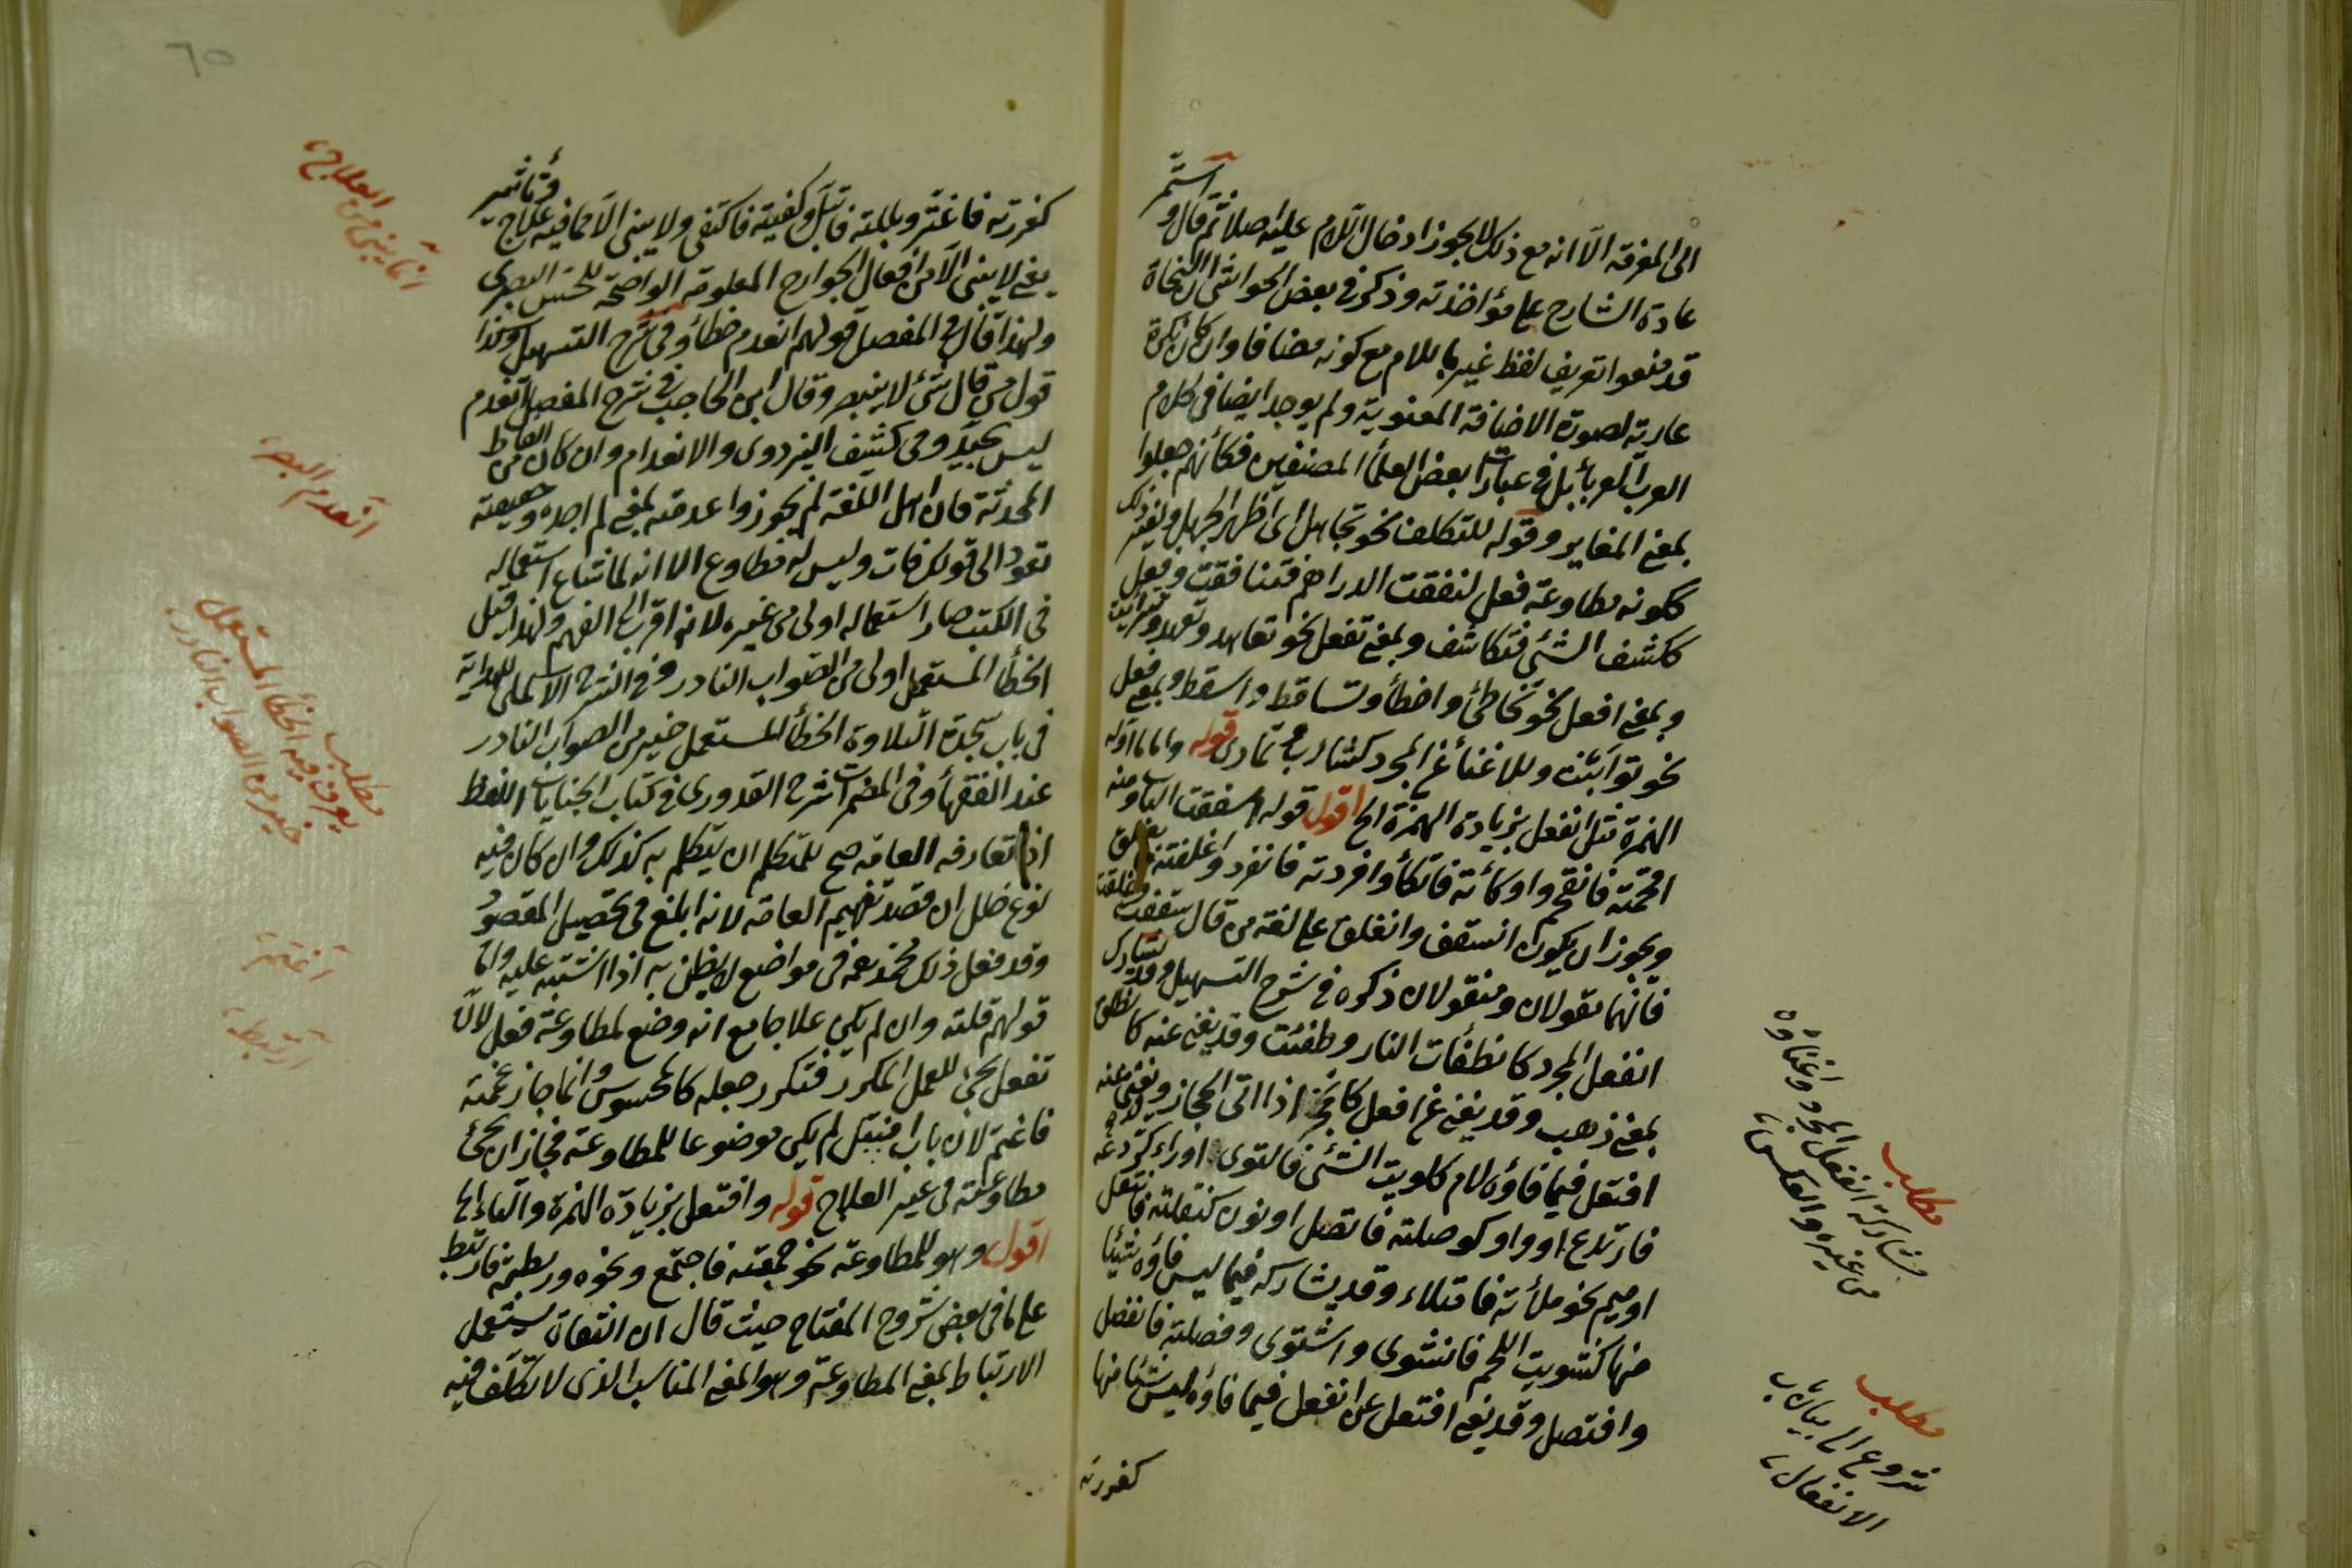 استمر
الى المعرفة الا انه مع ذلك لا يجوز ادخال اللام عليه اصلا ثم قال و
عادة الشارح على مؤاخذته وذكر في بعض الحواشي ان النحاة
قد منعوا تعريف لفظ غير باللام مع كونه مضافا وان كان نكرة
عارية لصورة الاضافة المعنوية ولم يوجد ايضا في كلام
العرب العرباء بل في عبارات بعض العلماء المصنفين فكأنهم جعلوا
بمعنى المغاير وقوله للتكلف نحو تجاهل اى اظهر الجهل
ككونه مطاوعة فعل لنفقت الدراهم فتنافقت وفعل
ككشف الشئ فتكاشف وبمعنى تفعل نحو تعاهد وتعهد
وبمعنى افعل نحو تخاطئ واخطأ وتساقط واسقط وبمعنى فعل
نحو توانيت وللاغناء عن المجرد كتثاءب وتمادى قوله واما ما اوله
الهمزة مثل انفعل بزيادة الهمزة الخ اقول قوله اسفقت الباب ومنه
اقحمته فانقحم واوكأته فاتكأ وافردته فانفرد واغلقته فانغلق
ويجوز ان يكون انسقف وانغلق على لغة من قال سقفت وغلقت
فانهما مقولان ومنقولان ذكره في شرح التسهيل وقد يشارك
انفعل المجرد كانطفأت النار وطفئت وقد يغني عنه كانطلق
بمعنى ذهب وقد يغني عن افعل كانحجز اذا اتى الحجاز ويغني عنه
افتعل فيما فاؤه لام كلويت الشئ فالتوى او راء كردعه
فارتدع او واو كوصلته فاتصل او نون كنقلته فانتقل
او ميم نحو ملأته فامتلاء وقد يشاركه فيما ليس فاؤه شيئا
منها كشويت اللحم فانشوى واشتوى وفصلته فانفصل
وافتصل وقد يغني افتعل عن انفعل فيما فاؤه ليس شيئا منها
كغررته
مطلب
مشاركة انفعل المجرد واغناؤه
عن غيره والعكس
مطلب
شروع الى بيان باب
الانفعال
٦٥
وتأثير
كغررته فاغتر وبللته فابتل وكفيته فاكتفى ولا يبنى الا مما فيه علاج
يعني لا يبنى الا من افعال الجوارح المعلومة الواضحة للحس البصرى
ولهذا قال في المفصل قولهم انعدم خطأ وفي شرح التسهيل وكذا
قول من قال شئ لا ينبصر وقال ابن الحاجب في شرح المفصل انعدم
ليس بجيد وفي كشف البزدوى والانعدام وان كان من الفاظ
المحدثة فان اهل اللغة لم يجوزوا عدمته بمعنى لم اجده وحقيقته
تعود الى قولك فات وليس له مطاوع الا انه لما شاع استعماله
في الكتب صار استعماله اولى من غيره لانه اقرب الى الفهم ولهذا قيل
الخطأ المستعمل اولى من الصواب النادر وفي الشرح الاكملى للهداية
في باب سجدة التلاوة الخطأ المستعمل خير من الصواب النادر
عند الفقهاء وفي المضمرات شرح القدورى في كتاب الجنايات اللفظ
اذا تعارفه العامة صح للمتكلم ان يتكلم به كذلك وان كان فيه
نوع خلل ان قصد تفهيم العامة لانه ابلغ في تحصيل المقصود
وقد فعل ذلك محمد في مواضع لا يظن به اذا اشتبه عليه واما
قولهم قلته وان لم يكن علاجا مع انه وضع لمطاوعة فعل لان
تفعل يجئ للعمل المكرر فتكرر جعله كالمحسوس وانما جاز غممته
فاغتم لان باب افتعل لم يكن موضوعا للمطاوعة فجاز ان يجئ
مطاوعته في غير العلاج قوله وافتعل بزيادة الهمزة والتاء الخ
اقول وهو للمطاوعة نحو جمعته فاجتمع ونحوه وربطته فارتبط
على ما في بعض شروح المفتاح حيث قال ان الثقات يستعمل
الارتباط بمعنى المطاوعة وهو المعنى المناسب الذى لا تكلف فيه
انما يبنى من العلاج
انعدم البصر
مطلب
يعرف فيه الخطأ المستعمل
خير من الصواب النادر
اغتم
ارتبط